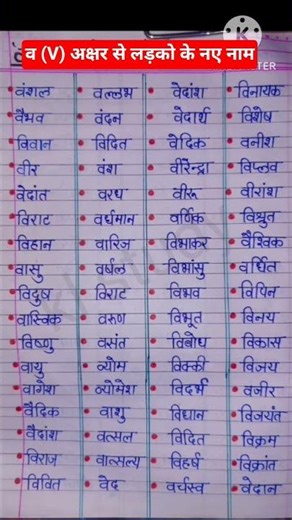 व (V) अक्षर से लड़को के नए नाम
वंशल वल्लभ वेदांश विनायक
वैभव वंदन वेदार्थ विशेष
विवान विदित वेदिक वनीश
वीर वंश वीरेन्द्रा विप्लव
वेदांत वरध वीरू वीरांश
विराट वर्धमान वर्णिक विश्रुत
विहान वारिज विभाकर वैश्विक
वासु वर्षल विभांसु वर्धित
विदुष विराट विभव विपिन
वास्विक वरुण विभूत विनय
विष्णु वसंत विबोध विकास
वायु व्योम विक्की विजय
वागेश व्योमेश विदर्भ वजीर
वैदिक वाशु विधान विजयंत
वैदांश वत्सल विदित विक्रम
विराज वात्सल्य विहर्ष विक्रांत
विवित वेद वर्चस्व वेदान